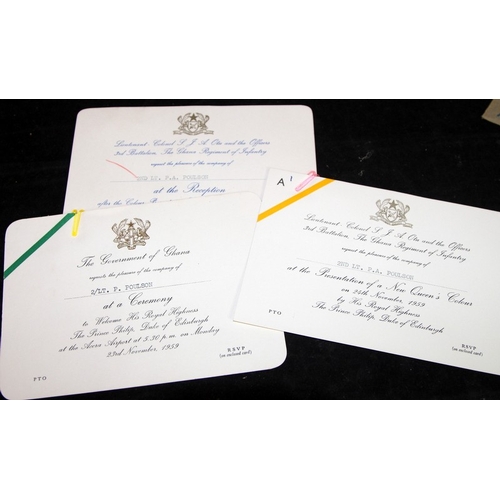 Lieutenant-Colonel S. J. A. Otu and the Officers
3rd Battalion, The Ghana Regiment of Infantry
request the pleasure of the company of
2ND LT. P.A. POULSON
at the Reception
after the Colour
The Government of Ghana
requests the pleasure of the company of
2/LT. P. POULSON
at a Ceremony
to Welcome His Royal Highness
The Prince Philip, Duke of Edinburgh
at the Accra Airport at 5.30 p.m. on Monday
23rd November, 1959
PTO
RSVP
(on enclosed card)
A1
Lieutenant-Colonel S. J. A. Otu and the Officers
3rd Battalion, The Ghana Regiment of Infantry
request the pleasure of the company of
2ND LT. P.A. POULSON
at the Presentation of a New Queen's Colour
on 24th November, 1959
by His Royal Highness
The Prince Philip, Duke of Edinburgh
RSVP
(on enclosed card)
PTO